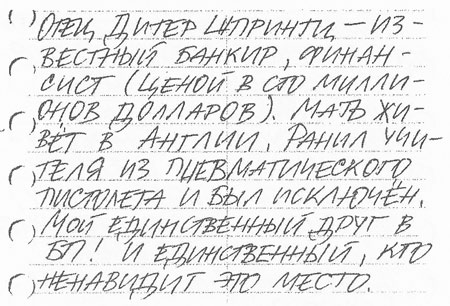 Отец Дитер Шпринтц – из-
вестный банкир, финан-
сист (ценой в сто милли-
онов долларов). Мать жи-
вёт в Англии. Ранил учи-
теля из пневматического
пистолета и был исключён.
Мой единственный друг в
БП! И единственный, кто
ненавидит это место.